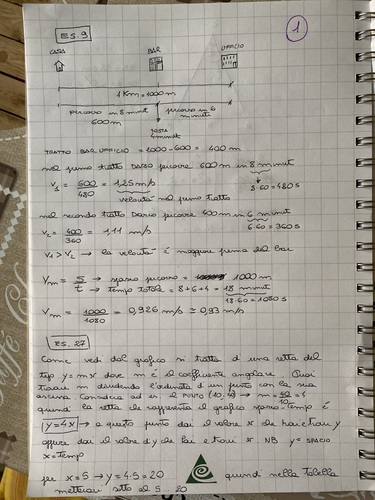 ES. 9
1
CASA BAR UFFICIO
1 Km = 1000 m
percorso in 8 minuti percorso in 6 minuti
600 m
sosta
4 minuti
TRATTO BAR UFFICIO = 1000 - 600 = 400 m
nel primo tratto Dario percorre 600 m in 8 minuti
8·60 = 480 s
V₁ = 600/480 = 1,25 m/s
velocità nel primo tratto
nel secondo tratto Dario percorre 400 m in 6 minuti
6·60 = 360 s
V₂ = 400/360 = 1,11 m/s
V₁ > V₂ → la velocità è maggiore prima del bar
Vm = S/t → spazio percorso = 1000 m
→ tempo totale = 8+6+4 = 18 minuti
18·60 = 1080 s
Vm = 1000/1080 = 0,926 m/s ≅ 0,93 m/s
ES. 27
Come vedi dal grafico si tratta di una retta del
tipo y = mx dove m è il coefficiente angolare. Puoi
trovare m dividendo l'ordinata di un punto con la sua
ascissa. Considera ad es. il PUNTO (10; 40) → m = 40/10 = 4
quindi la retta che rappresenta il grafico spazio-tempo è
y = 4x → a questo punto dai il valore x che hai e trovi y
oppure dai il valore di y che hai e trovi x NB y = SPAZIO
x = tempo
per x = 5 → y = 4·5 = 20 quindi nella tabella
metterai sotto al 5 20